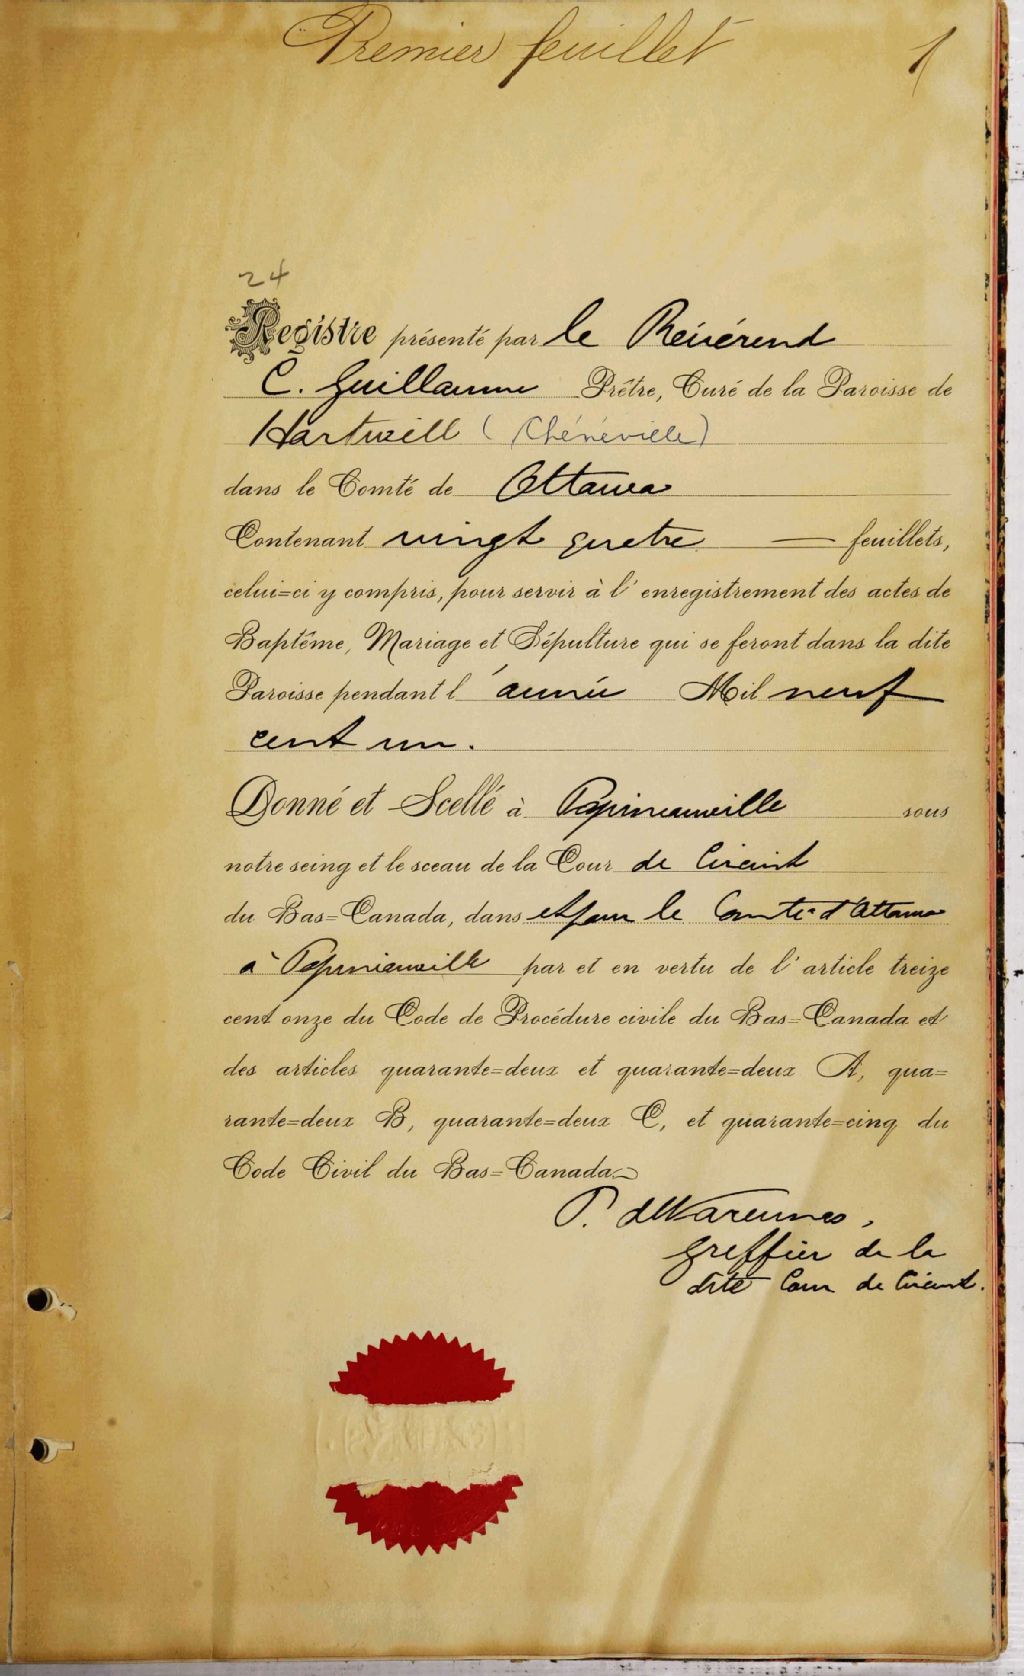 Premier feuillet 1
24
Registre présenté par le Révérend
C. Guillaume Prêtre, Curé de la Paroisse de
Hartwell (Chénéville)
dans le Comté de Ottawa
Contenant vingt quatre — feuillets,
celui=ci y compris, pour servir à l'enregistrement des actes de
Baptême, Mariage et Sépulture qui se feront dans la dite
Paroisse pendant l'année Mil neuf
cent un.
Donné et Scellé à Papineauville sous
notre seing et le sceau de la Cour de Circuit
du Bas=Canada, dans et pour le Comté d'Ottawa
à Papineauville par et en vertu de l'article treize
cent onze du Code de Procédure civile du Bas=Canada et
des articles quarante=deux et quarante=deux A, qua=
rante=deux B, quarante=deux C, et quarante=cinq du
Code Civil du Bas=Canada
P. deVarennes,
Greffier de la
dite Cour de Circuit.